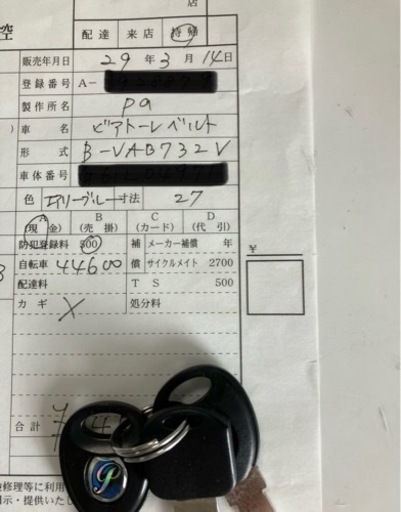 店
控
配達 来店 持帰
販売年月日 29年3月14日
登録番号 A-
製作所名 Pa
車名 ビアトーレベルト
形式 B-VAB732V
車体番号
色 エアリーブルー 寸法 27
A B C D
(現金) (売掛) (カード) (代引)
防犯登録料 500 補償 メーカー補償 年
自転車 44600 サイクルメイト 2700
配達料 TS 500
カギ X 処分料
¥
合計
修理等に利用
示・提供いた